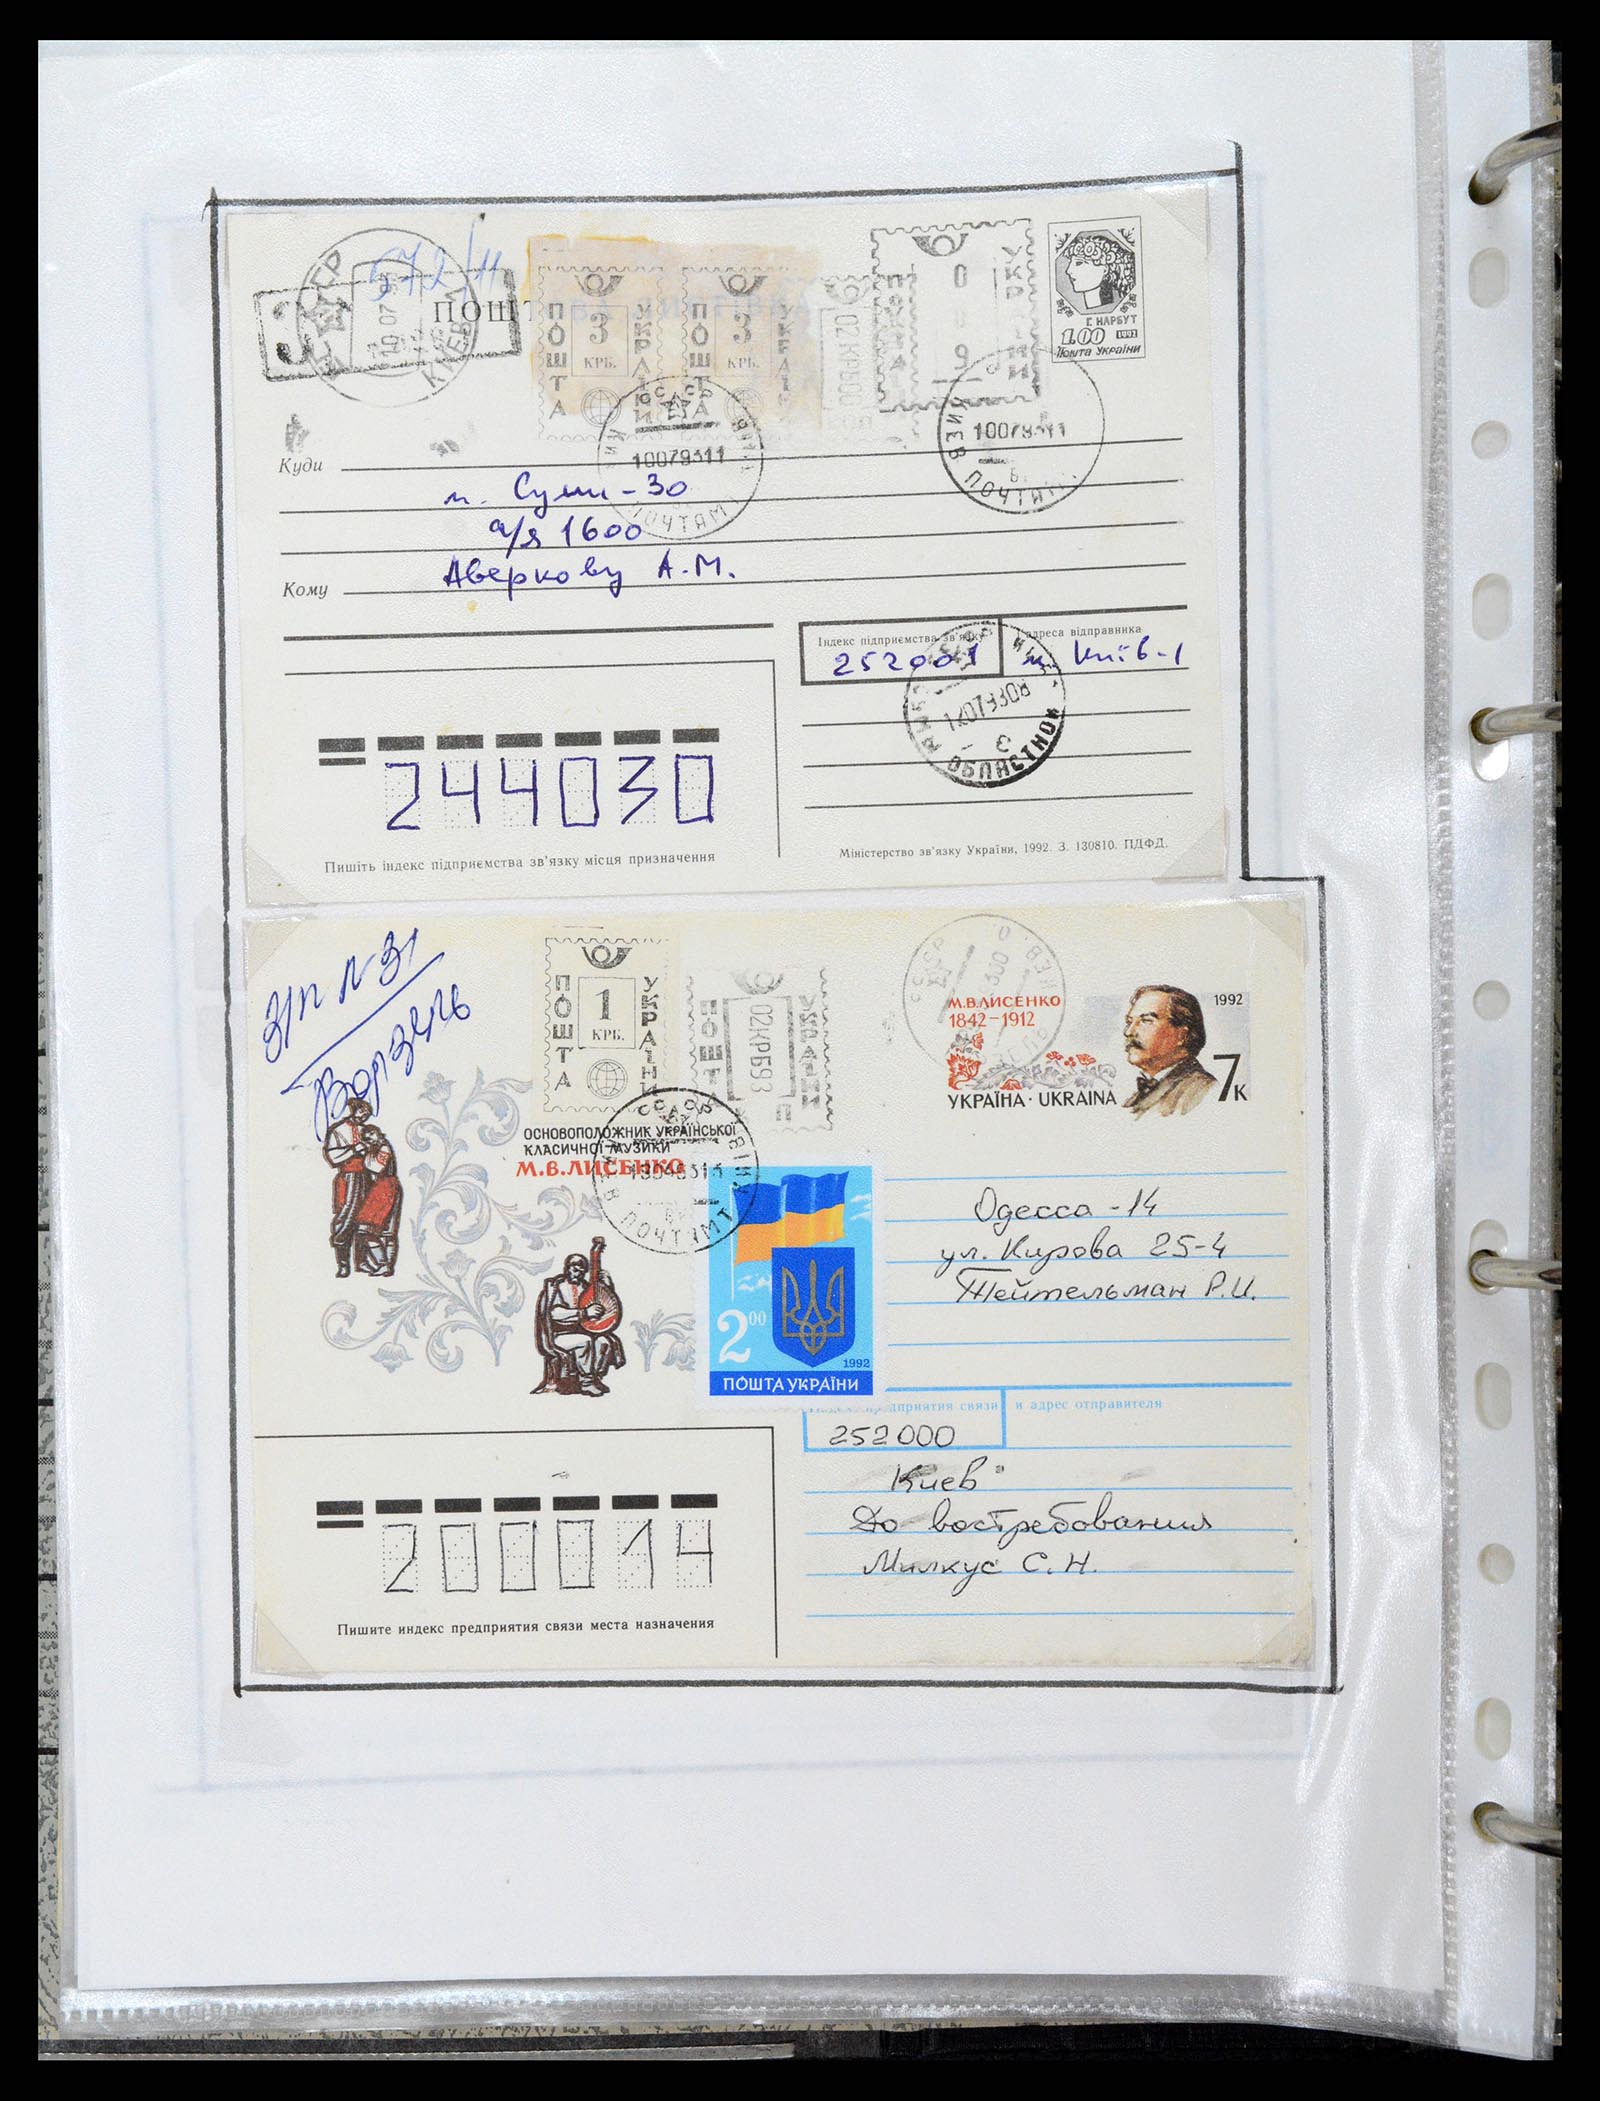 572/11
З
КИЕВ 1
ПОШ
ПОШТА
УКРАЇНИ
3
КРБ.
ПОШТА
УКРАЇНИ
3
КРБ.
02КРБ00
Г. НАРБУТ
1.00 1992
Пошта України
10079311
КИЕВ ПОЧТАМТ
10079311
КИЕВ ПОЧТАМТ
Куди
м. Суми-30
а/я 1600
Кому
Аверкову А.М.
Індекс підприємства зв'язку
і адреса відправника
252001
м Київ-1
ОБЛАСТНОЙ
244030
Пишіть індекс підприємства зв'язку місця призначення
Міністерство зв'язку України, 1992. З. 130810. ПДФД.
З/п №31
Ворзель
ПОШТА
УКРАЇНИ
1
КРБ.
ПОШТ
02КРБ93
СССР
М.В.ЛИСЕНКО
1842–1912
1992
7к
УКРАЇНА · UKRAINA
ОСНОВОПОЛОЖНИК УКРАЇНСЬКОЇ
КЛАСИЧНОЇ МУЗИКИ
М.В.ЛИСЕНКО
СССР
ПОЧТАМТ
2 00
1992
ПОШТА УКРАЇНИ
Одесса -14
ул. Кирова 25-4
Тейтельман Р.И.
Индекс предприятия связи
и адрес отправителя
252000
Киев
До востребования
Милкус С.Н.
200014
Пишите индекс предприятия связи места назначения